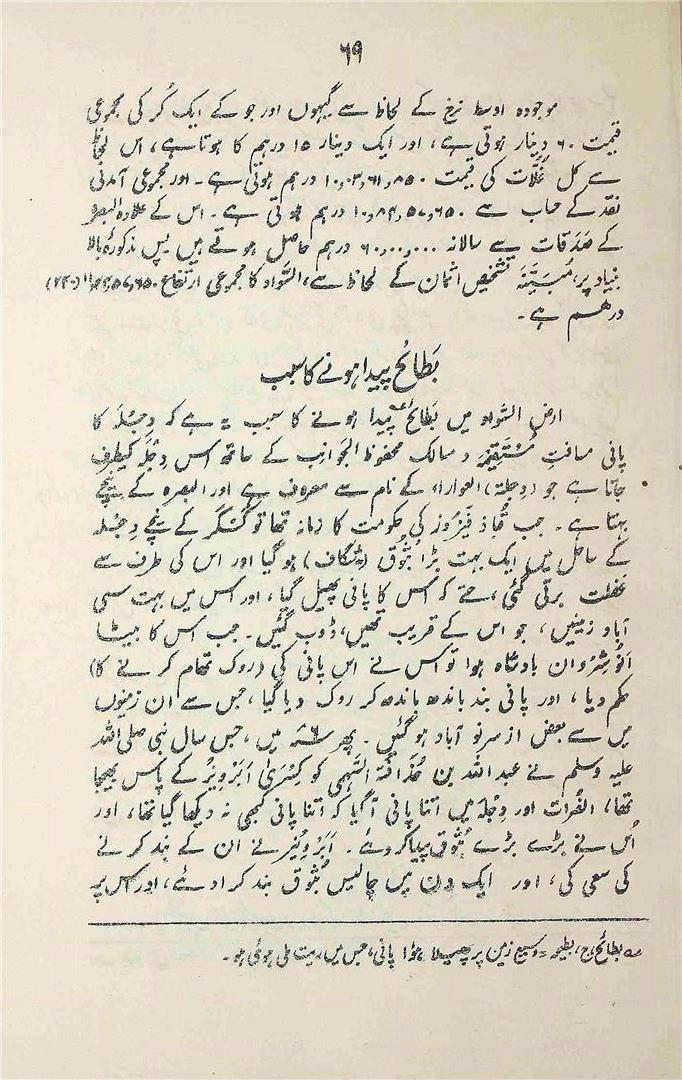 ۶۹
موجودہ اوسط نرخ کے لحاظ سے گیہوں اور جو کے ایک کُر کی مجموعی
قیمت ۶۰ دینار ہوتی ہے، اور ایک دینار ۱۵ درہم کا ہوتا ہے، اس لحاظ
سے کل غَلّات کی قیمت ۱۰,۰۳,۶۱,۸۵۰ درہم ہوتی ہے۔ اور مجموعی آمدنی
نقد کے حساب سے ۱۰,۸۴,۵۷,۶۵۰ درہم ہوتی ہے۔ اس کے علاوہ البصرہ
کے صَدَقات سے سالانہ ۶۰,۰۰,۰۰۰ درہم حاصل ہوتے ہیں پس مذکورۂ بالا
بنیاد پر، مُبَیَّنَہ تشخیص اثمان کے لحاظ سے، السَّواد کا مجموعی ارتفاع ۱۱,۴۴,۵۷,۶۵۰ (۲۴۰)
درھسم ہے۔
بَطائح پیدا ہونے کا سبب
ارض السَّواد میں بَطائح؎ پیدا ہونے کا سبب یہ ہے کہ دِجلَہ کا
پانی مسافتِ مُسْتَقِیْمَہ و مسالک محفوظ الجَوانِب کے ساتھ اس دِجْلَہ کیطرف
جاتا ہے جو (دِجلۃ) العوراء کے نام سے معروف ہے اور البصرہ کے نیچے
بہتا ہے۔ جب قُباذ فَیْرُوز کی حکومت کا زمانہ تھا تو کَسْکَر کے نیچے دِجْلہ
کے ساحل میں ایک بہت بڑا بُثُوق (شگاف) ہو گیا اور اس کی طرف سے
غفلت برتی گئی، حتے کہ اس کا پانی پھیل گیا، اور اس میں بہت سی
آباد زمینیں، جو اس کے قریب تھیں، ڈوب گئیں۔ جب اس کا بیٹا
اَنُوشِرْوان بادشاہ ہوا تو اس نے اس پانی کی (روک تھام کرنے کا)
حکم دیا، اور پانی بند باندھ باندھ کر روک دیا گیا، جس سے ان زمینوں
میں سے بعض از سر نو آباد ہو گئیں۔ پھر سنہ ۶ھ میں، جس سال نبی صلی اللہ
علیہ وسلم نے عبد اللہ بن حُذافَۃ السَّہمی کو کِسْریٰ اَبَرْوِیْز کے پاس بھیجا
تھا، الفُرات اور دِجْلَہ میں اتنا پانی آ گیا کہ اتنا پانی کبھی نہ دیکھا گیا تھا، اور
اُس نے بڑے بڑے بُثُوق پیدا کر دیے۔ اَبَرْوِیْز نے ان کے بند کرنے
کی سعی کی، اور ایک دن میں چالیس بُثُوق بند کرا دئے، اور اس پر
؎ بطائح ج، بَطِیحہ = وسیع زمین پر پھیلا ہوا پانی، جس میں ریت ملی ہوئی ہو۔